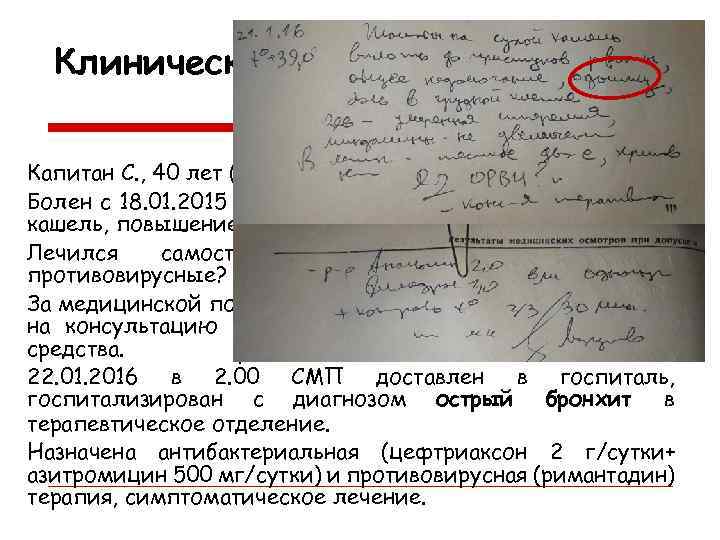 Клиническ
21.1.16 Жалобы на сухой кашель
t°=39,0 вплоть до приступов рвоты,
общее недомогание, одышку,
боль в грудной клетке
зев - умеренная гиперемия,
миндалины - не увеличены
В легких - жесткое дых-е, хрипов
нет
ОРВИ
- конс-я терапевта !!!
Результаты медицинских осмотров при допуске
- р-р Анальгин 2,0
Димедрол 1,0 в/м однокр
+ контроль t° ч/з 30 мин.
Капитан С., 40 лет (
Болен с 18.01.2015
кашель, повышение
Лечился самост
противовирусные?
За медицинской по
на консультацию
средства.
22.01.2016 в 2.00 СМП доставлен в госпиталь,
госпитализирован с диагнозом острый бронхит в
терапевтическое отделение.
Назначена антибактериальная (цефтриаксон 2 г/сутки+
азитромицин 500 мг/сутки) и противовирусная (римантадин)
терапия, симптоматическое лечение.